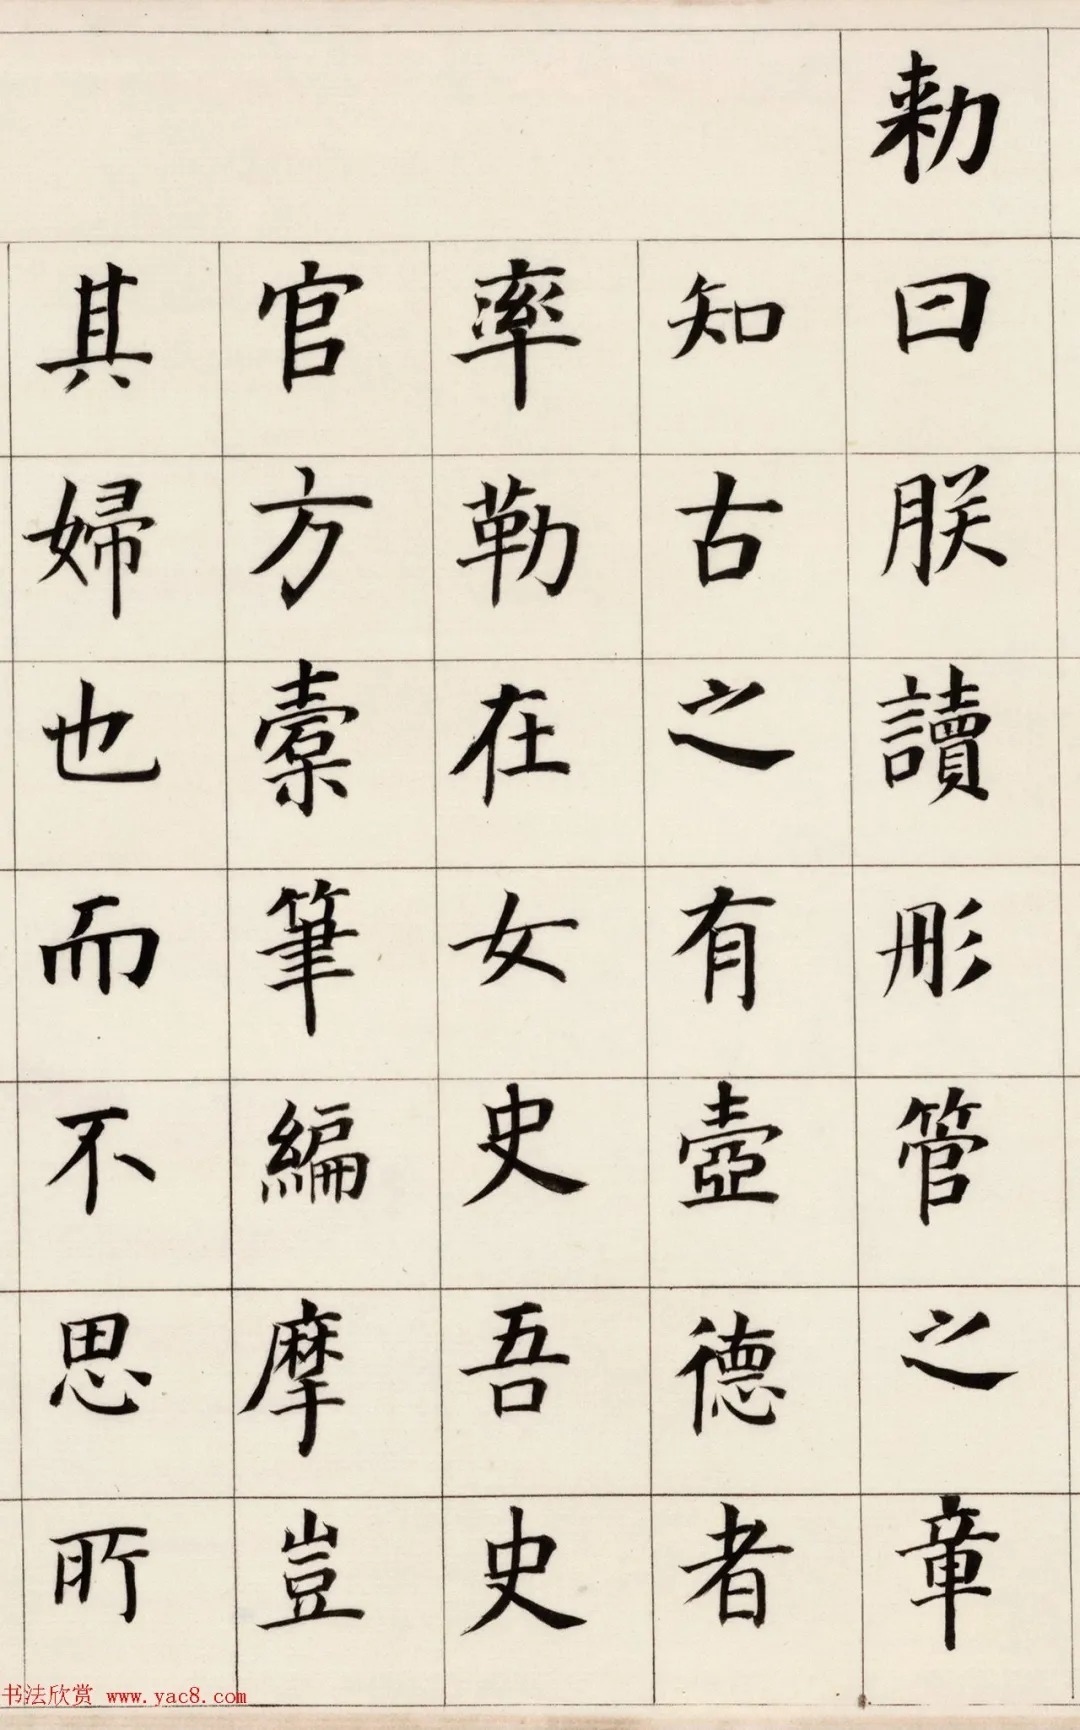 勑曰朕讀彤管之章
知古之有壼德者
率勒在女史吾史
官方櫜筆編摩豈
其婦也而不思所
书法欣赏 www.yac8.com